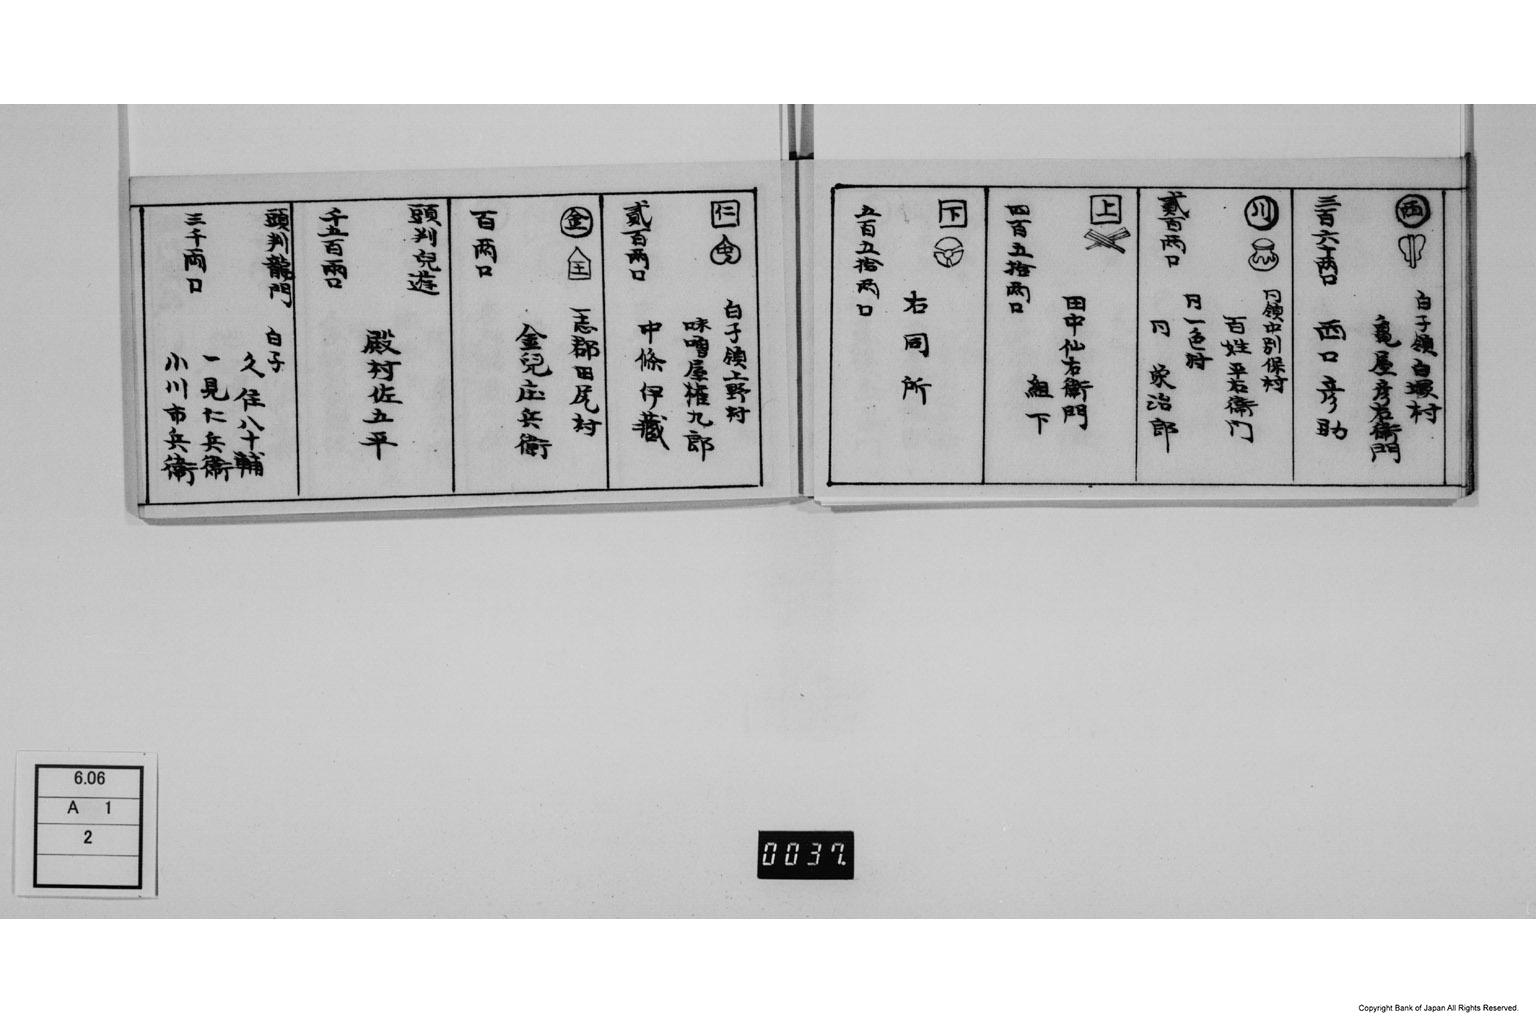 西
三百六十両口
白子領白塚村
亀屋彦右衛門
西口彦助
川
貳百両口
同領中別保村
百姓平右衛門
同一色村
同 栄治郎
上
四百五拾両口
田中仙右衛門
組下
下
五百五拾両口
右同所
仁
貳百両口
白子領上野村
味噌屋権九郎
中條伊藏
金
百両口
一志郡田尻村
金児庄兵衛
頭判児遊
千五百両口
殿村佐五平
頭判龍門
三千両口
白子
久住八十輔
一見仁兵衛
小川市兵衛
6.06
A 1
2
0037.
Copyright Bank of Japan All Rights Reserved.